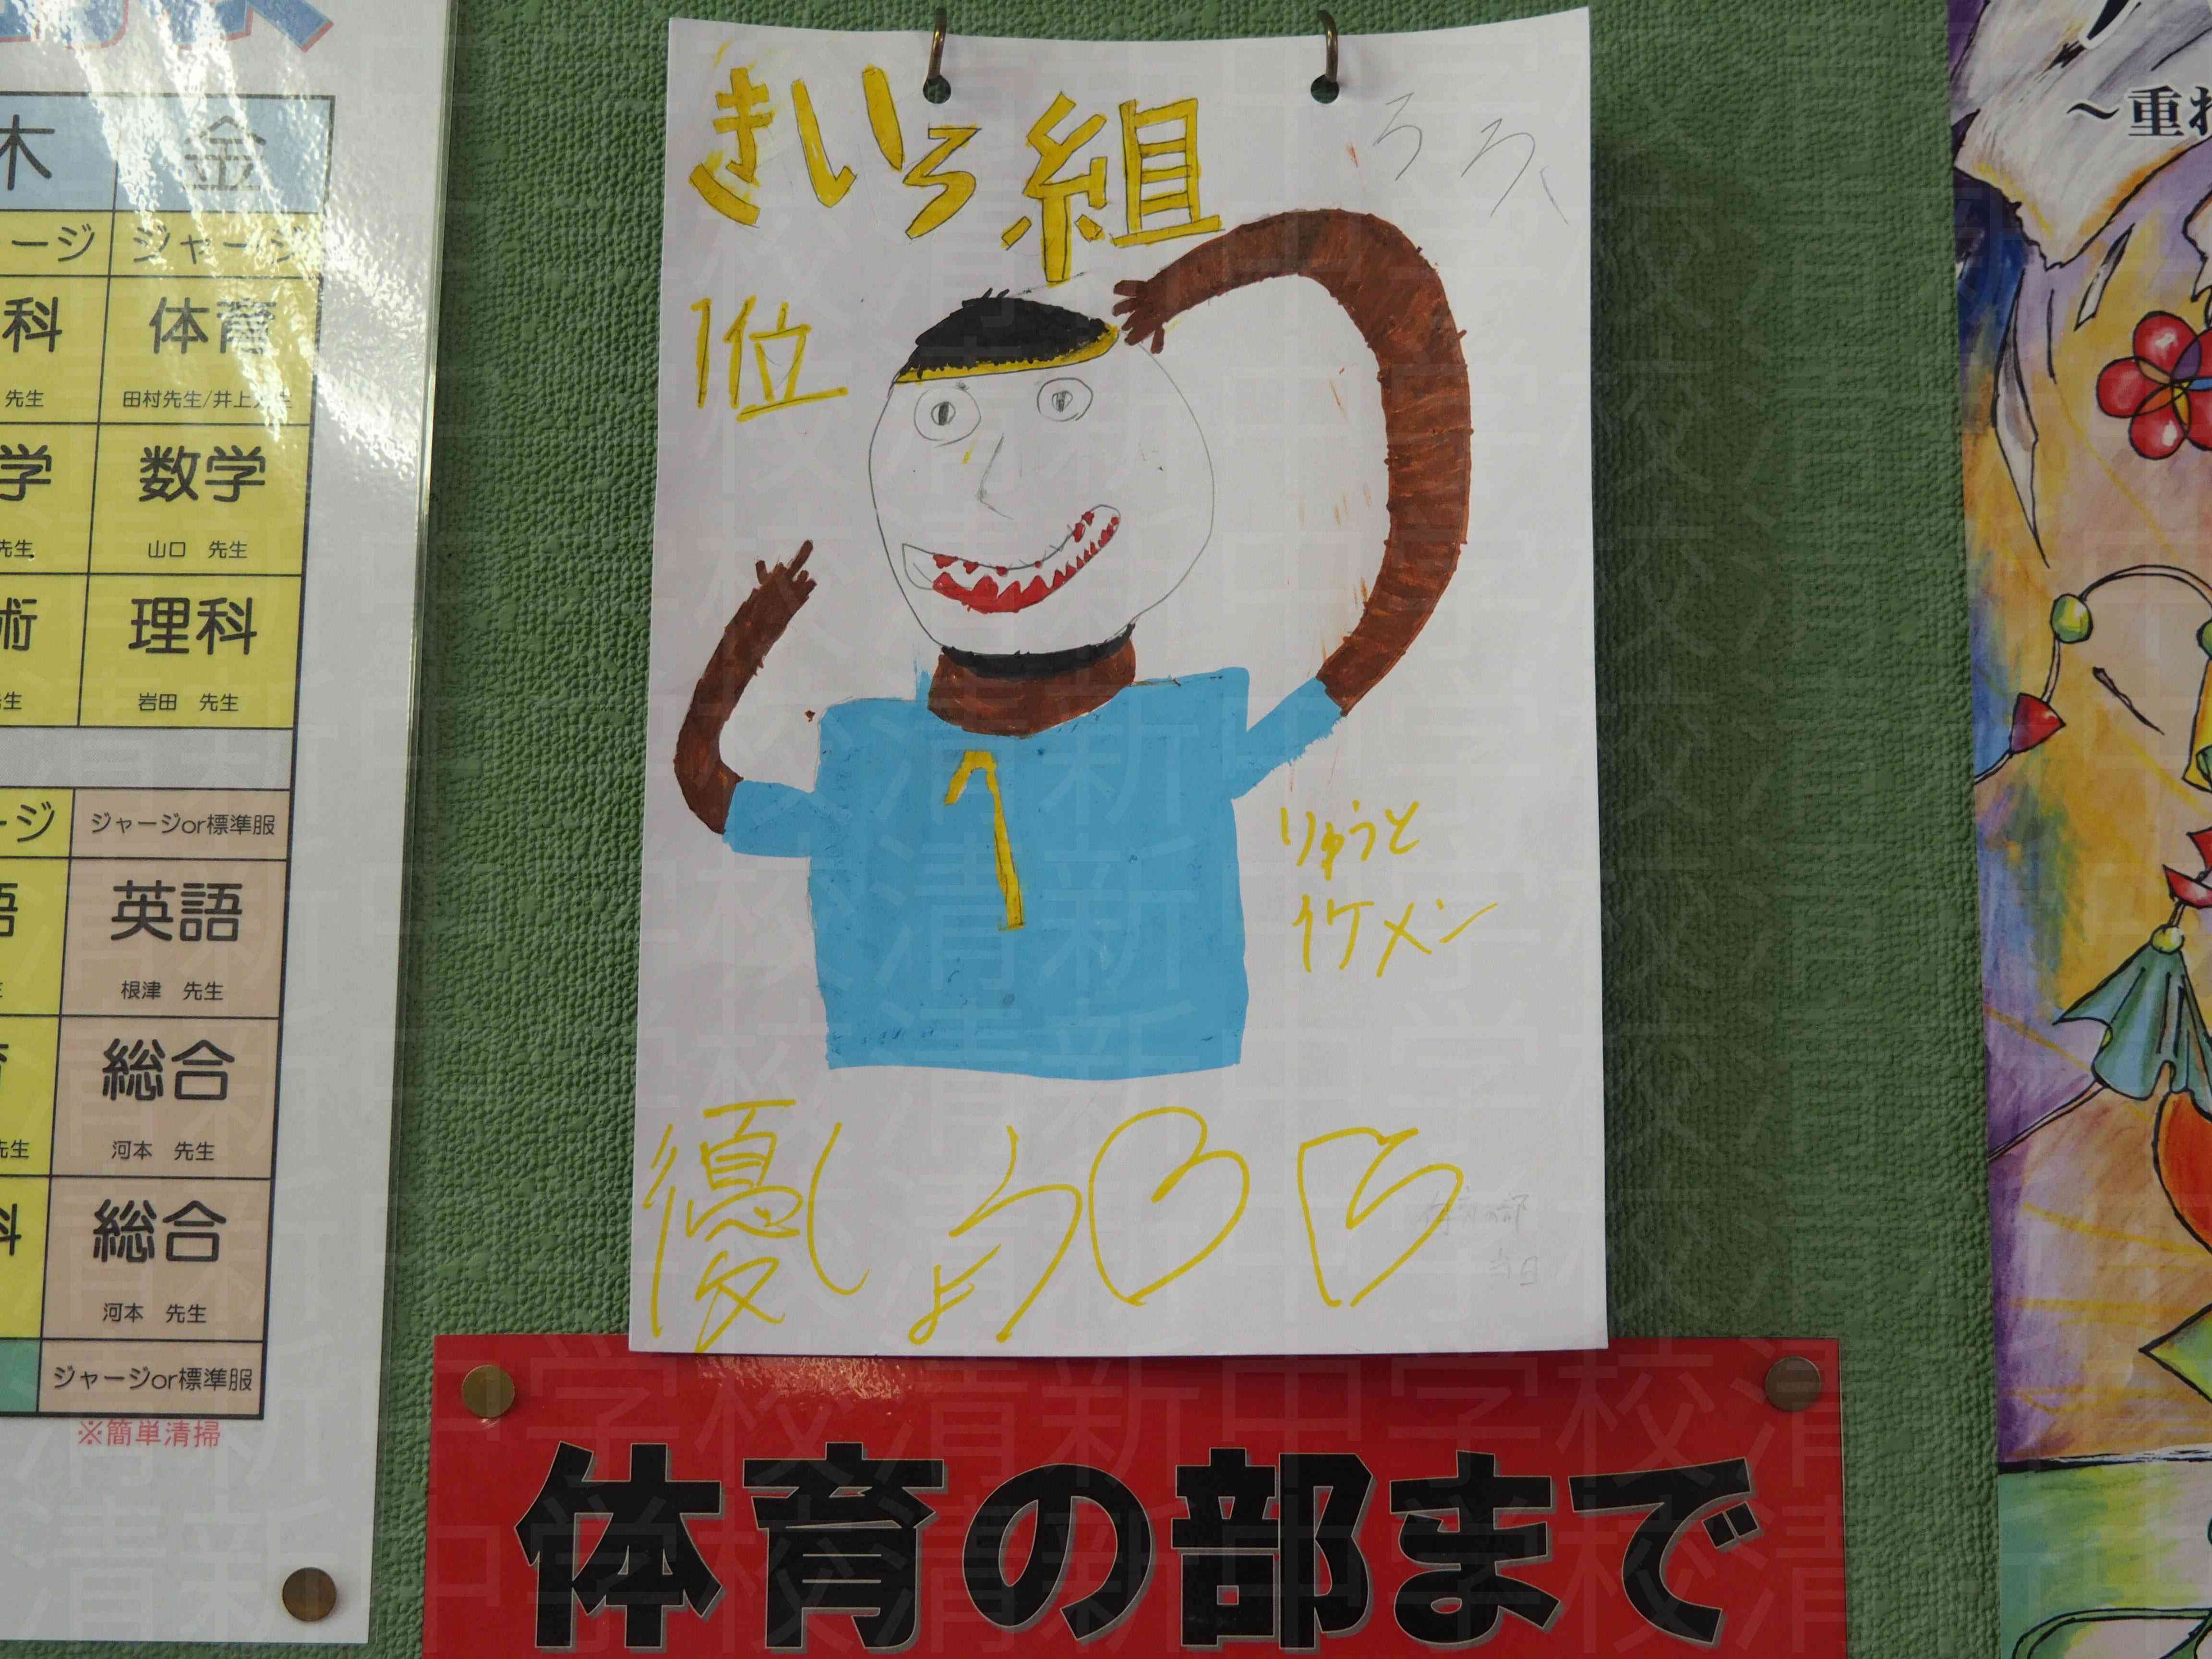 木 金
ージ ジャージ
科 体育
先生 田村先生/井上先生
学 数学
先生 山口 先生
術 理科
先生 岩田 先生
ージ ジャージor標準服
語 英語
根津 先生
育 総合
先生 河本 先生
科 総合
河本 先生
ジャージor標準服
※簡単清掃
きいろ組
ろろ
1位
1
りゅうと
イケメン
優しょう
体育の部
当日
体育の部まで
〜重ね
清新中学校